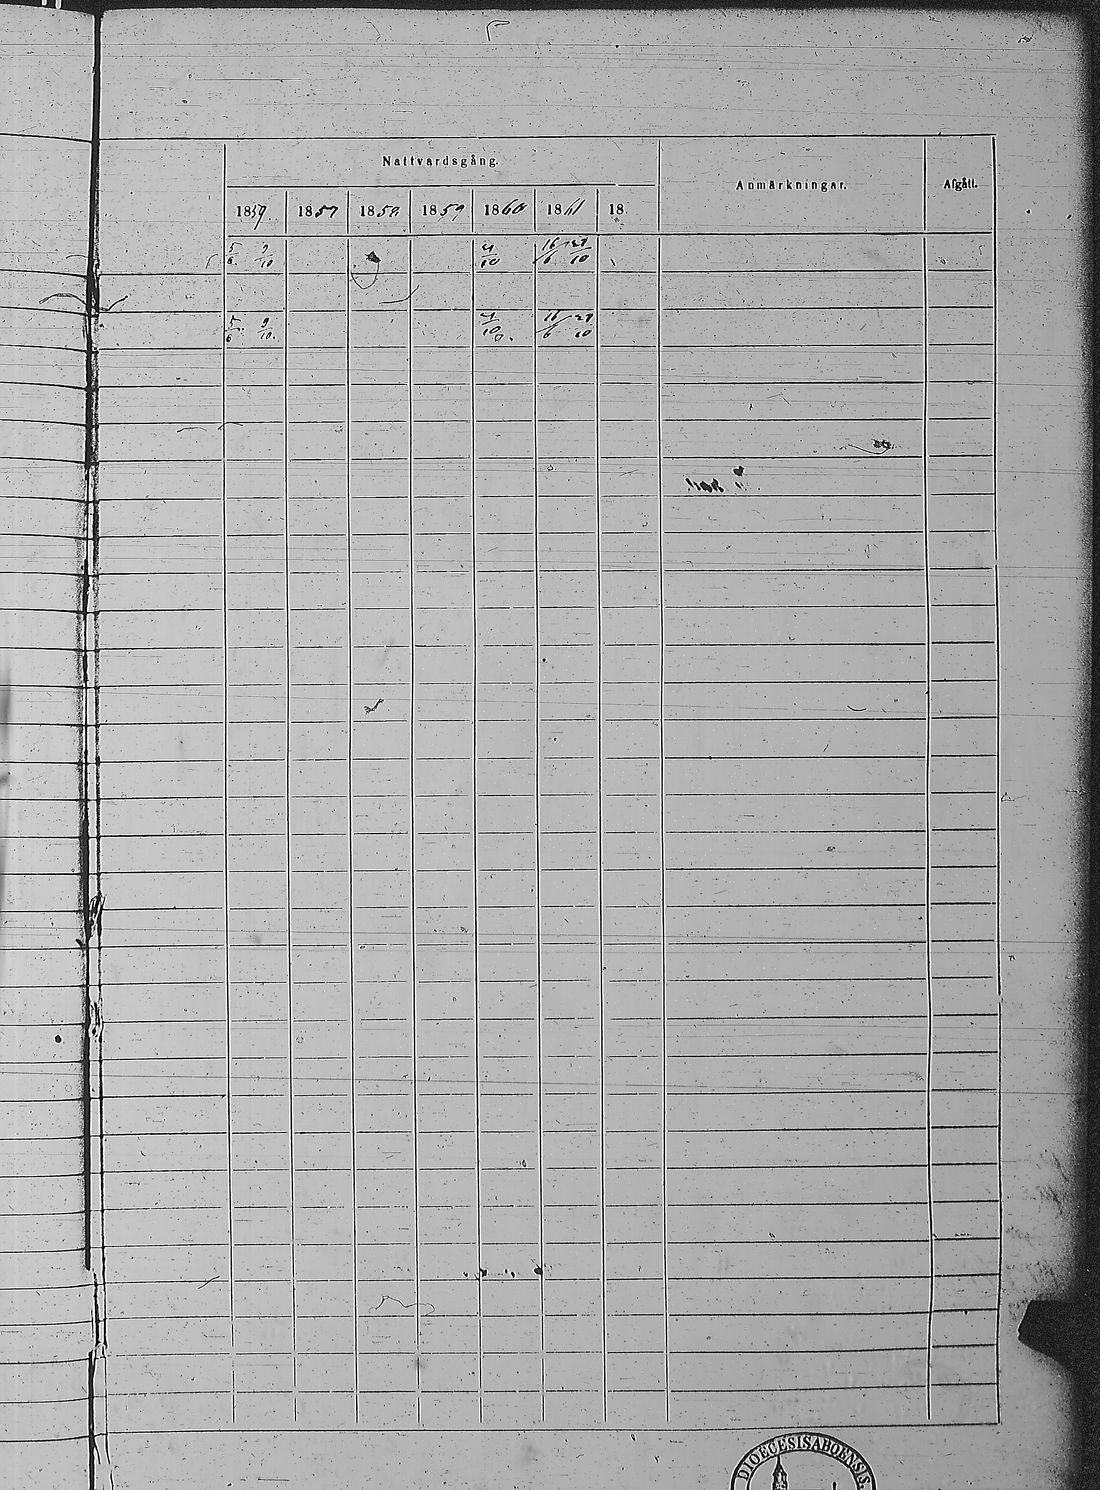 Nattvardsgång.
Anmärkningar.
Afgått.
1857 1858 1859 1860 1861 18
5/6 9/10 4/10 16/6 27/10
5/6 9/10. 4/10 16/6 27/10
DIOECESIS ABOENSIS.